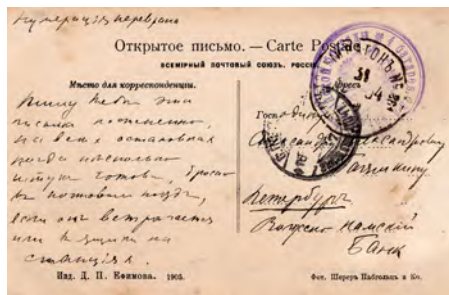 Нумерація перервана
Открытое письмо. — Carte Postale.
ВСЕМІРНЫЙ ПОЧТОВЫЙ СОЮЗЪ. РОССІЯ
Мѣсто для корреспонденціи.
Пишу тебѣ эти
письма постепенно,
на всѣхъ остановкахъ
когда нѣсколько
штукъ готовы, бросаю
въ почтовый поѣздъ,
если онъ встрѣчается
или въ ящики на
станціяхъ.
Господину
Александру Александровичу
Петербургъ
Волжско Камскій
Банк
ВАГОНЪ №
31
04
Изд. Д. П. Ефимова. 1905.
Фот. Шереръ Набгольцъ и Ко.